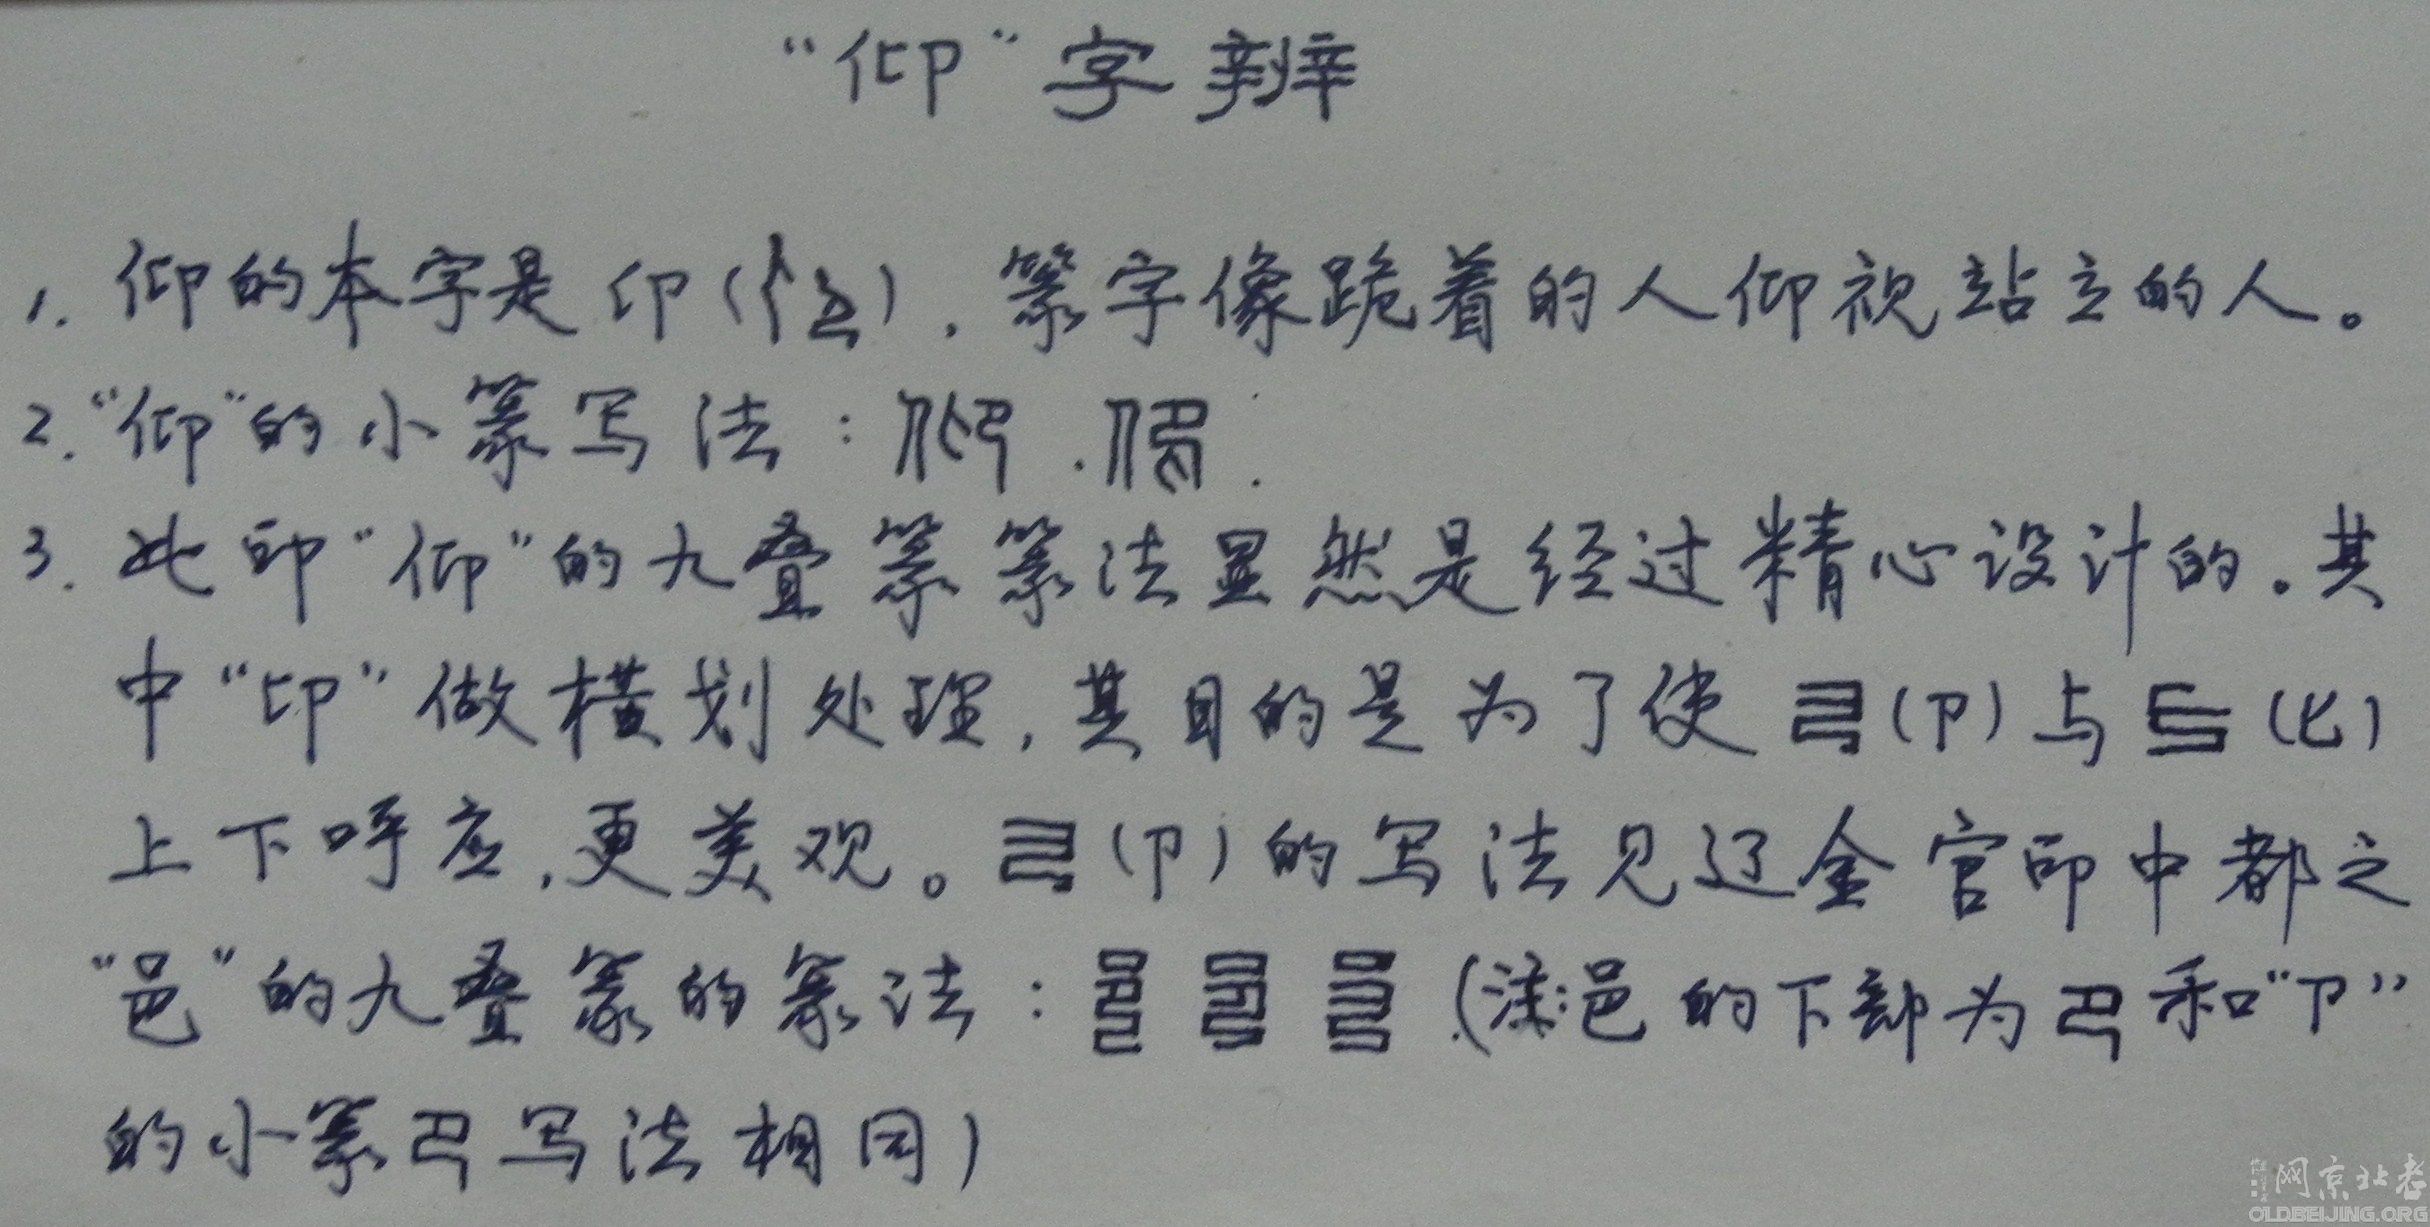 “仰”字辨
1. 仰的本字是卬（），篆字像跪着的人仰视站立的人。
2. “仰”的小篆写法：
3. 此印“仰”的九叠篆篆法显然是经过精心设计的。其
中“卬”做横划处理，其目的是为了使（卩）与（匕）
上下呼应，更美观。（卩）的写法见辽金官印中都之
“邑”的九叠篆的篆法：（注：邑的下部为和“卩”
的小篆写法相同）
老北京网
OLDBEIJING.ORG